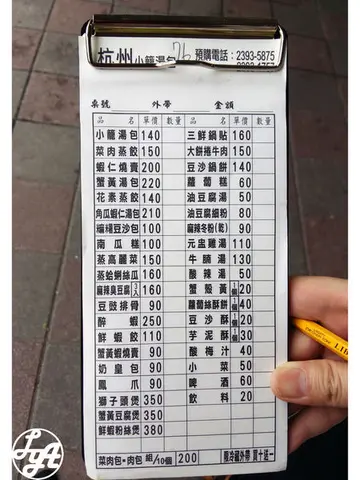 杭州小籠湯包 76 預購電話：2393-5875
桌號 外帶 金額
品名 單價 數量 品名 單價 數量
小籠湯包 140 三鮮鍋貼 160
菜肉蒸餃 150 大餅捲牛肉 150
蝦仁燒賣 200 豆沙鍋餅 140
蟹黃湯包 220 蘿蔔糕 60
花素蒸餃 140 油豆腐湯 50
角瓜蝦仁湯包 210 油豆腐細粉 80
嬌欉豆沙包 100 麻辣冬粉(乾) 90
南瓜糕 100 元盅雞湯 110
蒸高麗菜 150 牛腩湯 130
蒸蛤蜊絲瓜 160 酸辣湯 50
麻辣臭豆腐 160 蟹殼黃 1個 40
豆豉排骨 90 蘿蔔絲酥餅 1個 40
醉蝦 250 豆沙酥 1個 20
鮮蝦餃 110 芋泥酥 1個 30
蟹黃蝦燒賣 90 酸梅汁 40
奶皇包 90 小菜 50
鳳爪 90 啤酒 60
獅子頭煲 350 飲料 20
蟹黃豆腐煲 350
鮮蝦粉絲煲 380
菜肉包·肉包 組/10個 200 限冷藏外帶 買十送一
LyA